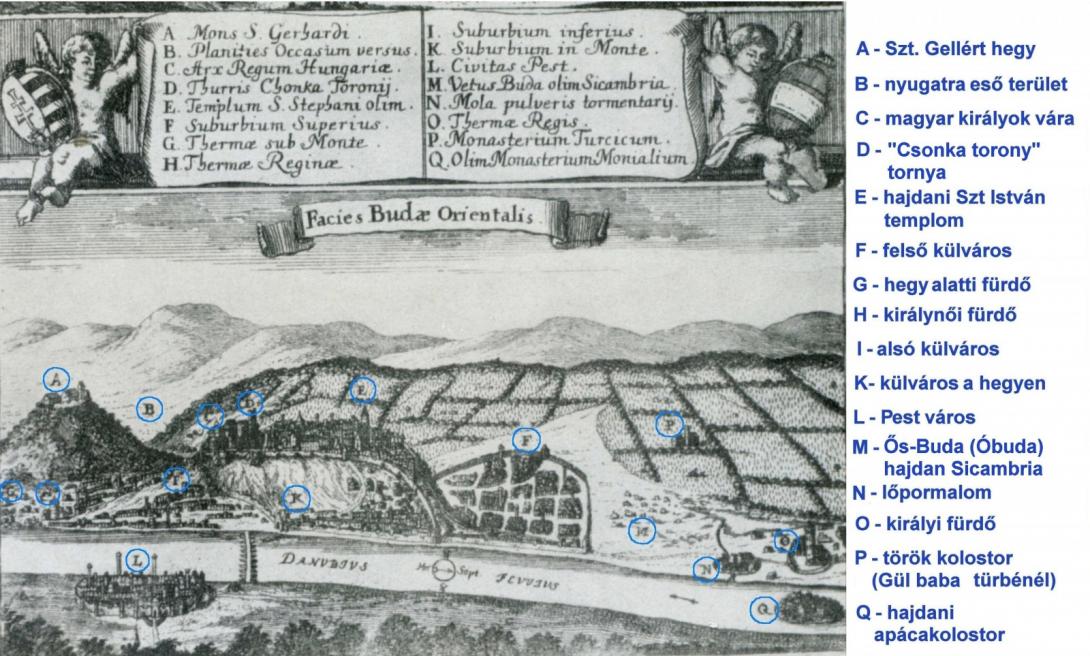 A Mons S. Gerhardi.
B. Planities Occasum versus.
C. Arx Regum Hungariæ.
D. Thurris Chonka Toronij.
E. Templum S. Stephani olim.
F Suburbium Superius.
G. Thermæ sub Monte.
H Thermæ Reginæ.
I. Suburbium inferius.
K Suburbium in Monte.
L. Civitas Pest.
M. Vetus Buda olim Sicambria
N. Mola pulveris tormentarij.
O. Thermæ Regis.
P. Monasterium Turcicum.
Q. Olim Monasterium Monialium
Facies Budæ Orientalis.
A
B
C
D
E
F
P
I
K
M
O
N
L
Q
DANUBIUS
Mer
Sept
FLUVIUS
A - Szt. Gellért hegy
B - nyugatra eső terület
C - magyar királyok vára
D - "Csonka torony"
tornya
E - hajdani Szt István
templom
F - felső külváros
G - hegy alatti fürdő
H - királynői fürdő
I - alsó külváros
K- külváros a hegyen
L - Pest város
M - Ős-Buda (Óbuda)
hajdan Sicambria
N - lőpormalom
O - királyi fürdő
P - török kolostor
(Gül baba türbénél)
Q - hajdani
apácakolostor